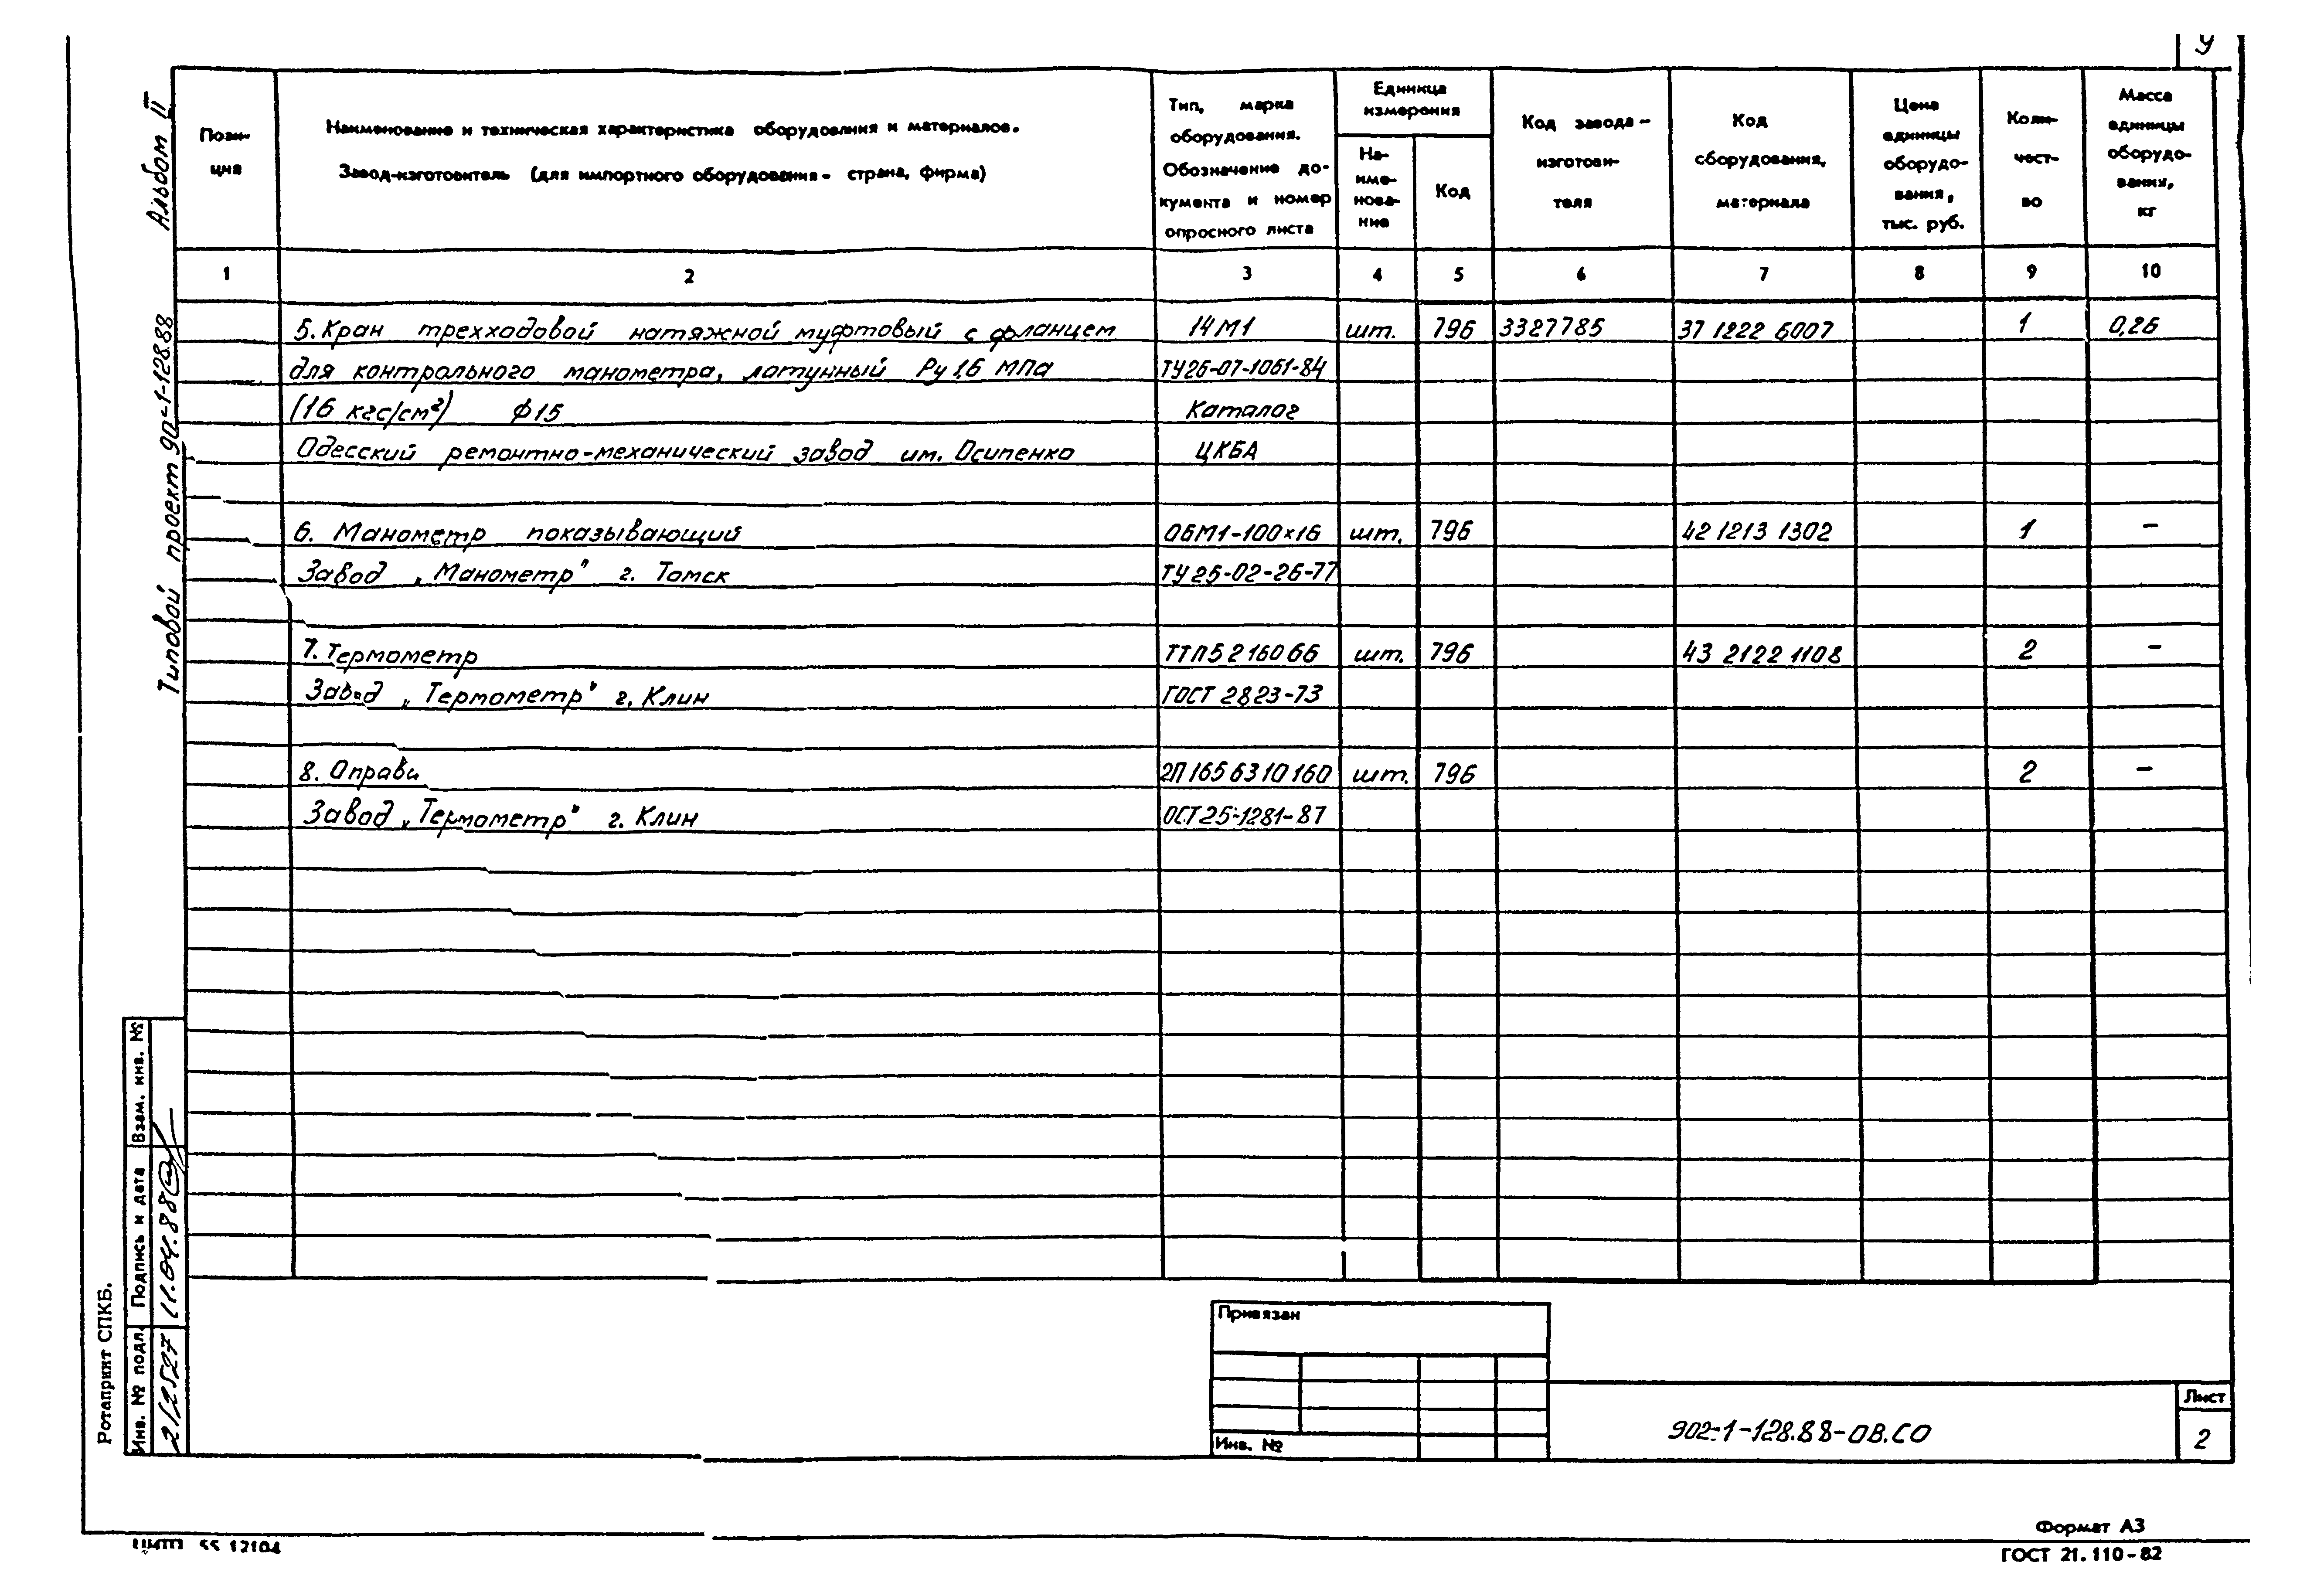 У
Альбом II
Типовой проект 902-1-128.88
Пози-
ция
Наименование и техническая характеристика оборудования и материалов.
Завод-изготовитель (для импортного оборудования - страна, фирма)
Тип, марка
оборудования.
Обозначение до-
кумента и номер
опросного листа
Единица
измерения
На-
име-
нова-
ние
Код
Код завода -
изготови-
теля
Код
оборудования,
материала
Цена
единицы
оборудо-
вания,
тыс. руб.
Коли-
чест-
во
Масса
единицы
оборудо-
вания,
кг
1 2 3 4 5 6 7 8 9 10
5. Кран трехходовой натяжной муфтовый с фланцем 14М1 шт. 796 3327785 37 1222 6007 1 0,26
для контрольного манометра, латунный Ру 1,6 МПа ТУ26-07-1061-84
(16 кгс/см²) ф15 Каталог
Одесский ремонтно-механический завод им. Осипенко ЦКБА
6. Манометр показывающий ОБМ1-100×16 шт. 796 42 1213 1302 1 –
Завод „Манометр" г. Томск ТУ25-02-26-77
7. Термометр ТТП5 2 160 66 шт. 796 43 2122 1108 2 –
Завод „Термометр" г. Клин ГОСТ 2823-73
8. Оправы 2П 165 63 10 160 шт. 796 2 –
Завод „Термометр" г. Клин ОСТ25-1281-87
Взам. инв. №
Подпись и дата 11.04.88
Инв. № подл.
Ротапринт СПКБ.
Привязан
Инв. №
902-1-128.88-ОВ.СО
Лист
2
Формат А3
ГОСТ 21.110-82
ЦИТП 55 12104